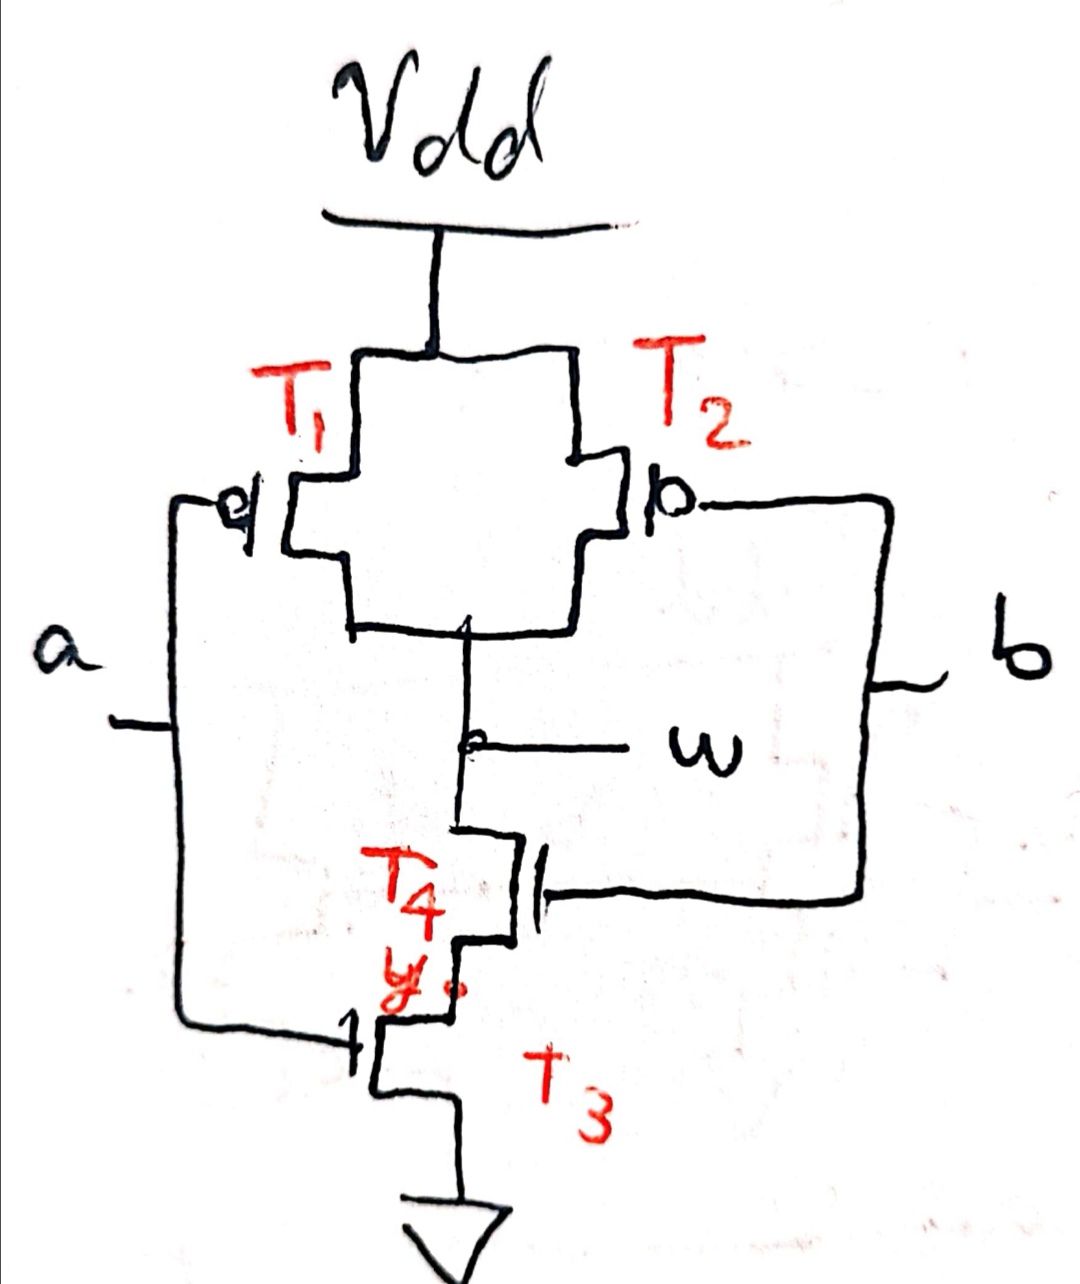 Vdd
T1
T2
a
b
w
T4
y
T3